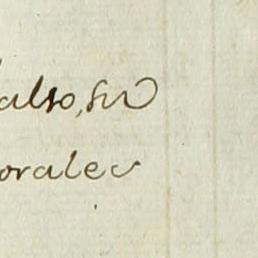 also, su
orales